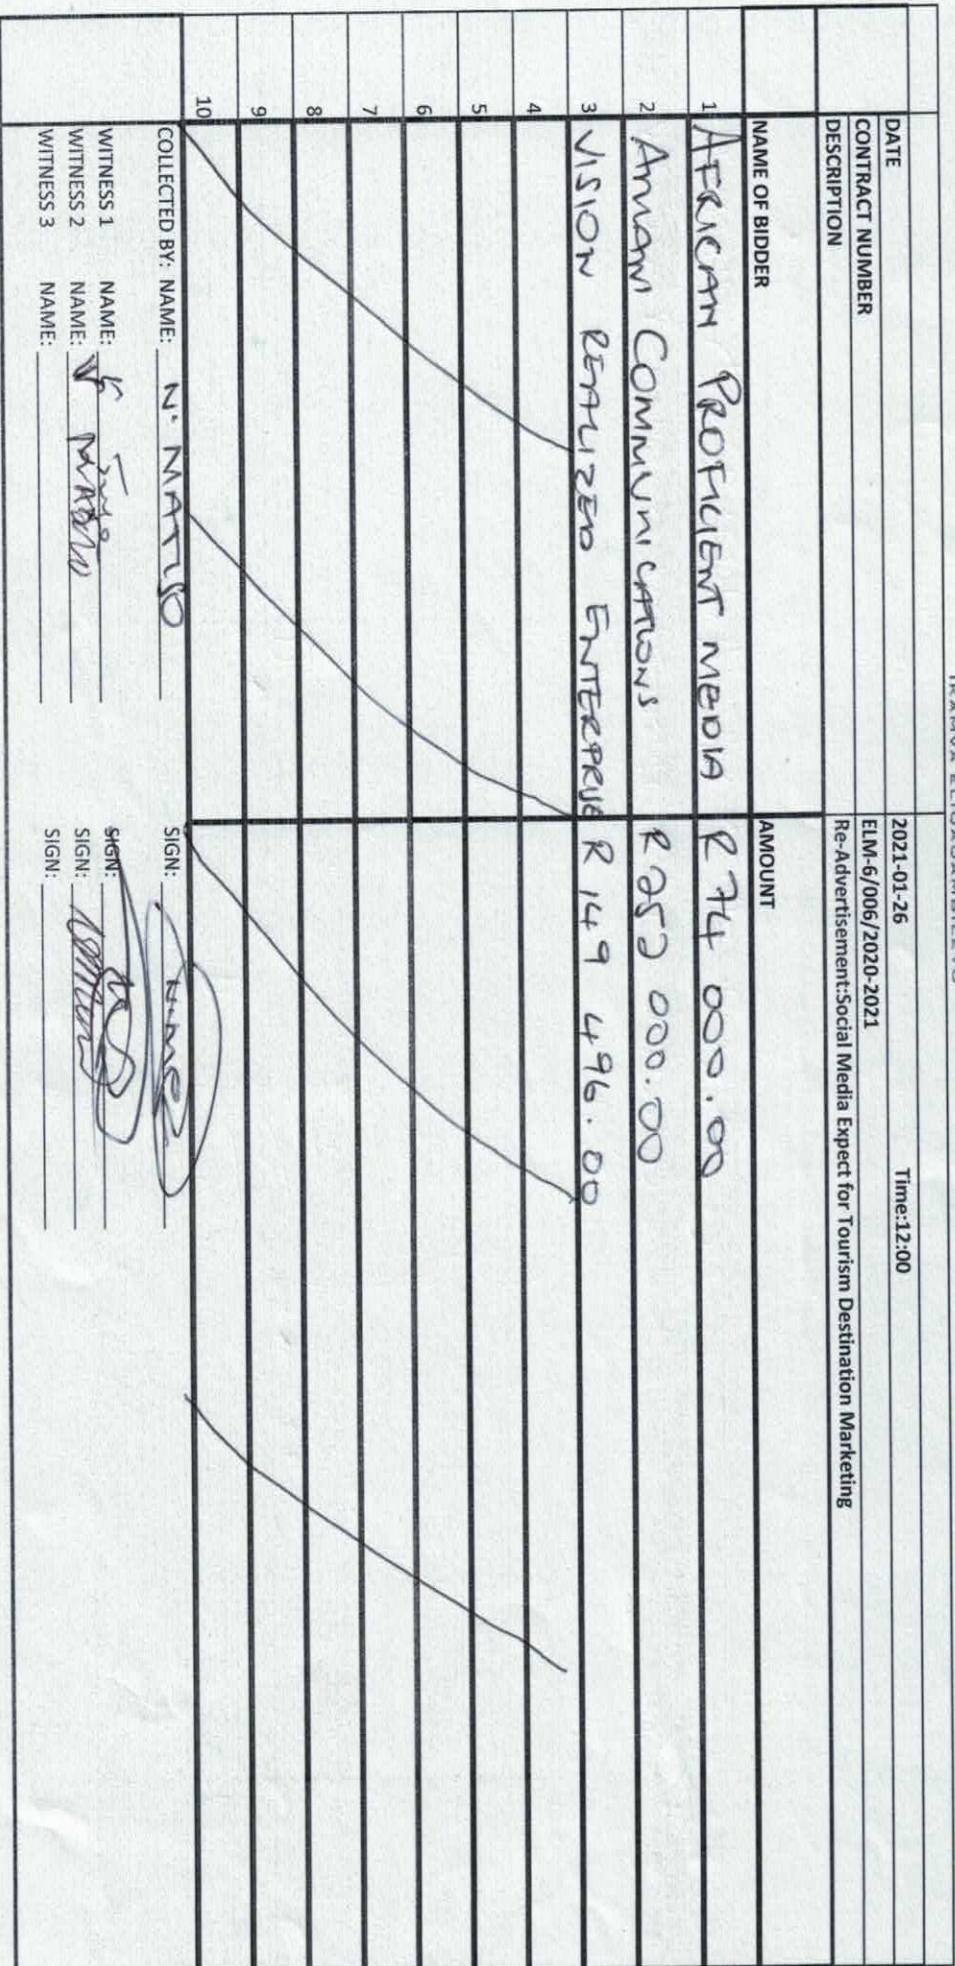 DATE 2021-01-26 Time:12:00
CONTRACT NUMBER ELM-6/006/2020-2021
DESCRIPTION Re-Advertisement:Social Media Expect for Tourism Destination Marketing
NAME OF BIDDER AMOUNT
1 AFRICAN PROFICIENT MEDIA R 74 000.00
2 AMANI COMMUNICATIONS R 252 000.00
3 VISION REALIZED ENTERPRISE R 149 496.00
4
5
6
7
8
9
10
COLLECTED BY: NAME: N. MATISO SIGN:
WITNESS 1 NAME: SIGN:
WITNESS 2 NAME: SIGN:
WITNESS 3 NAME: SIGN: